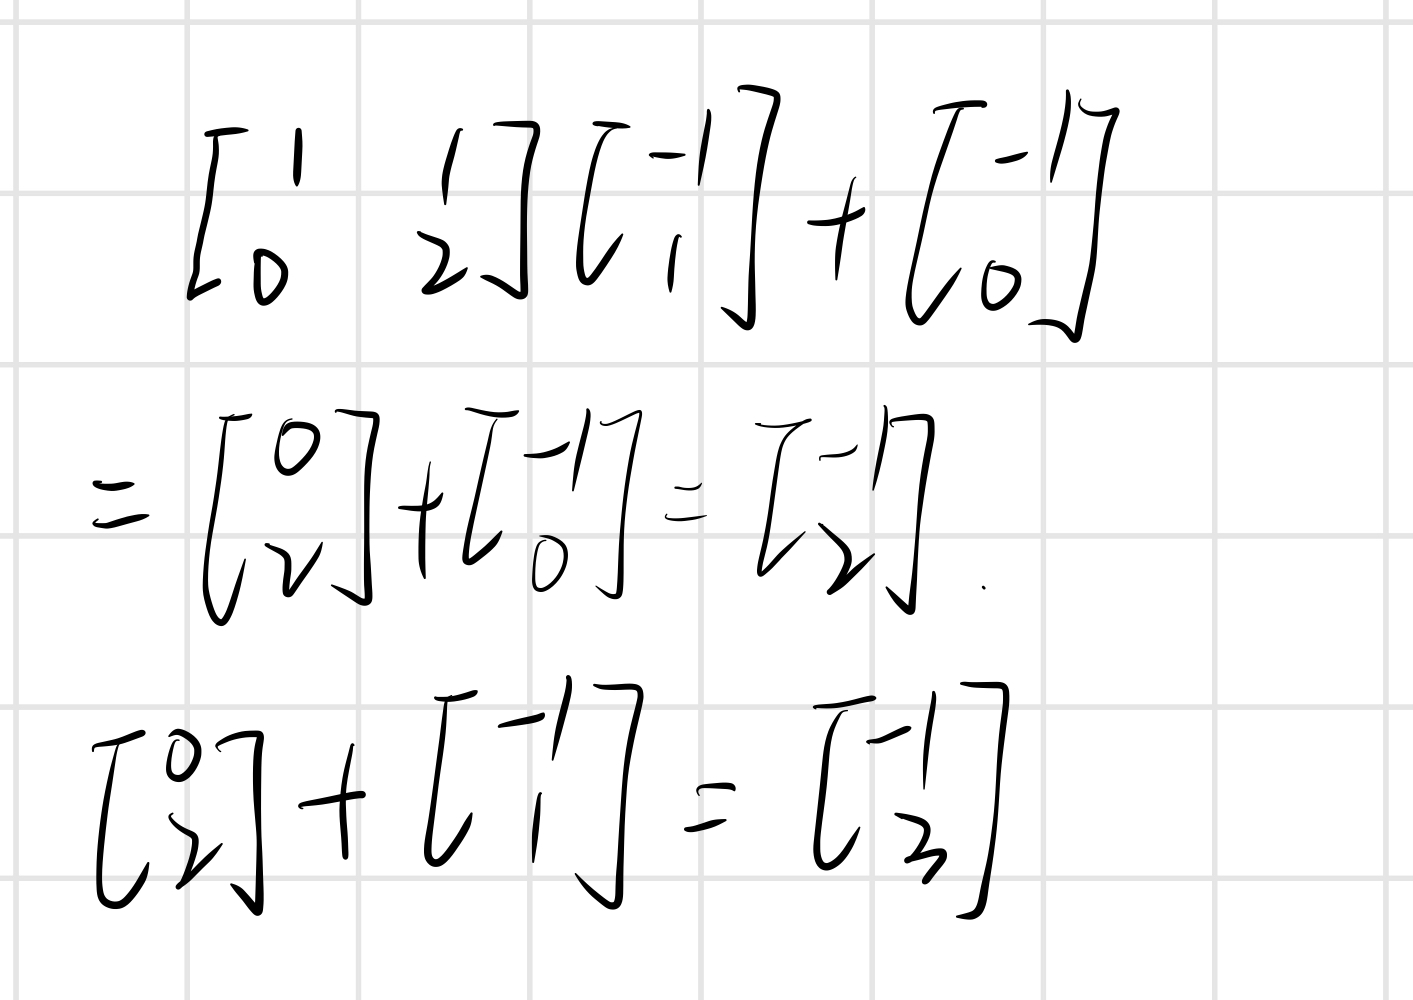 [1 1; 0 2][-1; 1] + [-1; 0]
= [0; 2] + [-1; 0] = [-1; 2].
[0; 2] + [-1; 1] = [-1; 3]